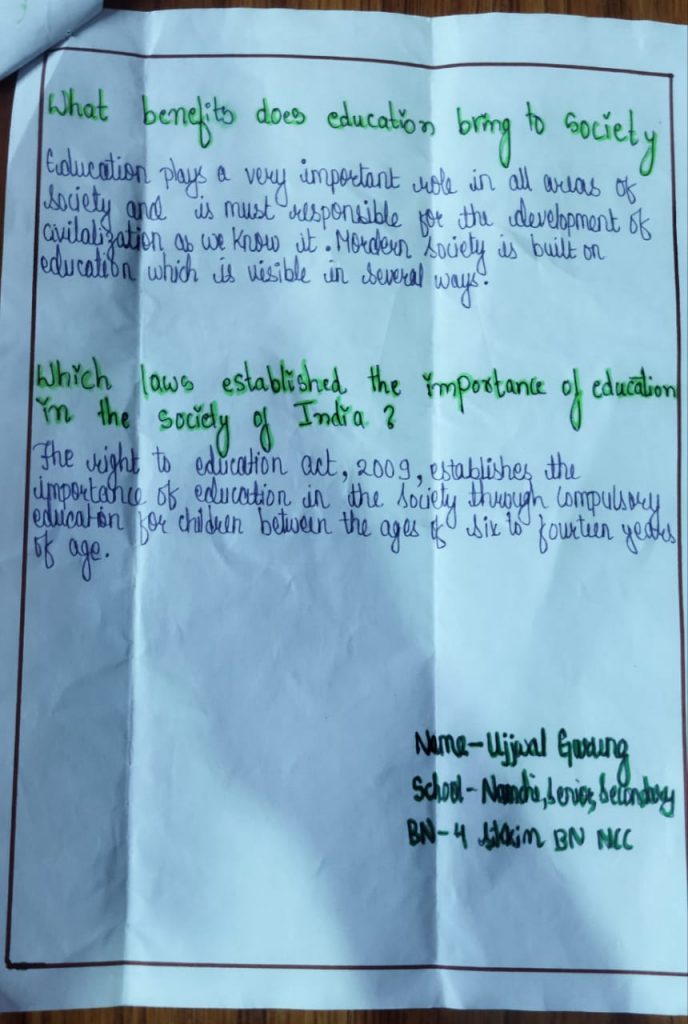 What benefits does education bring to society
Education plays a very important role in all areas of
society and is must responsible for the development of
civilalization as we know it. Mordern society is built on
education which is visible in several ways.
Which laws established the importance of education
in the society of India ?
The right to education act, 2009, establishes the
importance of education in the society through compulsory
education for children between the ages of six to fourteen years
of age.
Name-Ujjwal Gurung
School-Namchi, Senior, Secondary
BN-4 Sikkim BN NCC